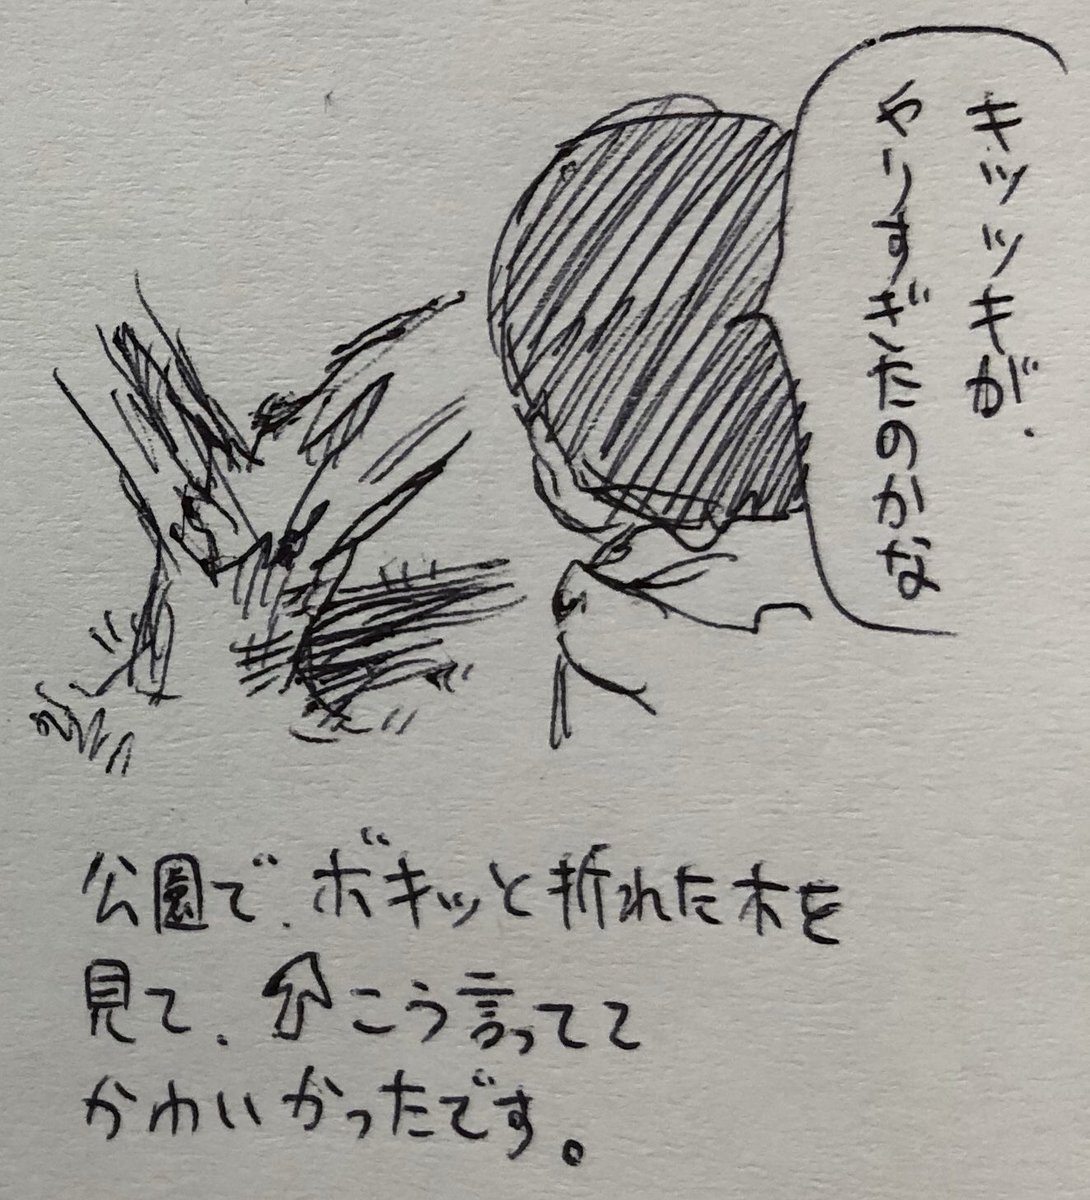 キツツキが、
やりすぎたのかな
公園で、ボキッと折れた木を
見て、こう言ってて
かわいかったです。